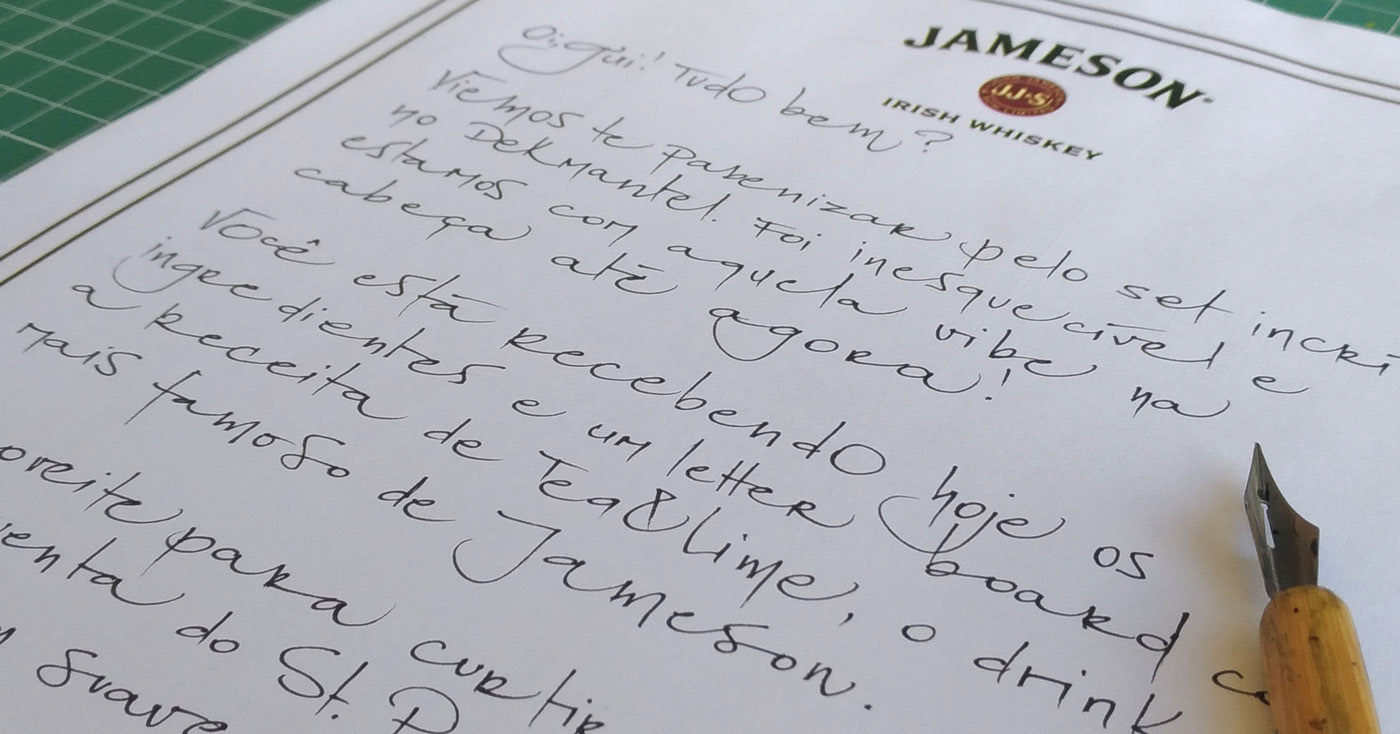 JAMESON
JJ&S
IRISH WHISKEY
Oi, Gui! Tudo bem?
Viemos te parenizar pelo set incrí
no Dekmantel. Foi inesquecível e
estamos com aquela vibe na
cabeça até agora!
Você está recebendo hoje os
ingredientes e um letter board co
a receita de Tea&Lime, o drink
mais famoso de Jameson.
oveite para curtir
venta do St. P
suave